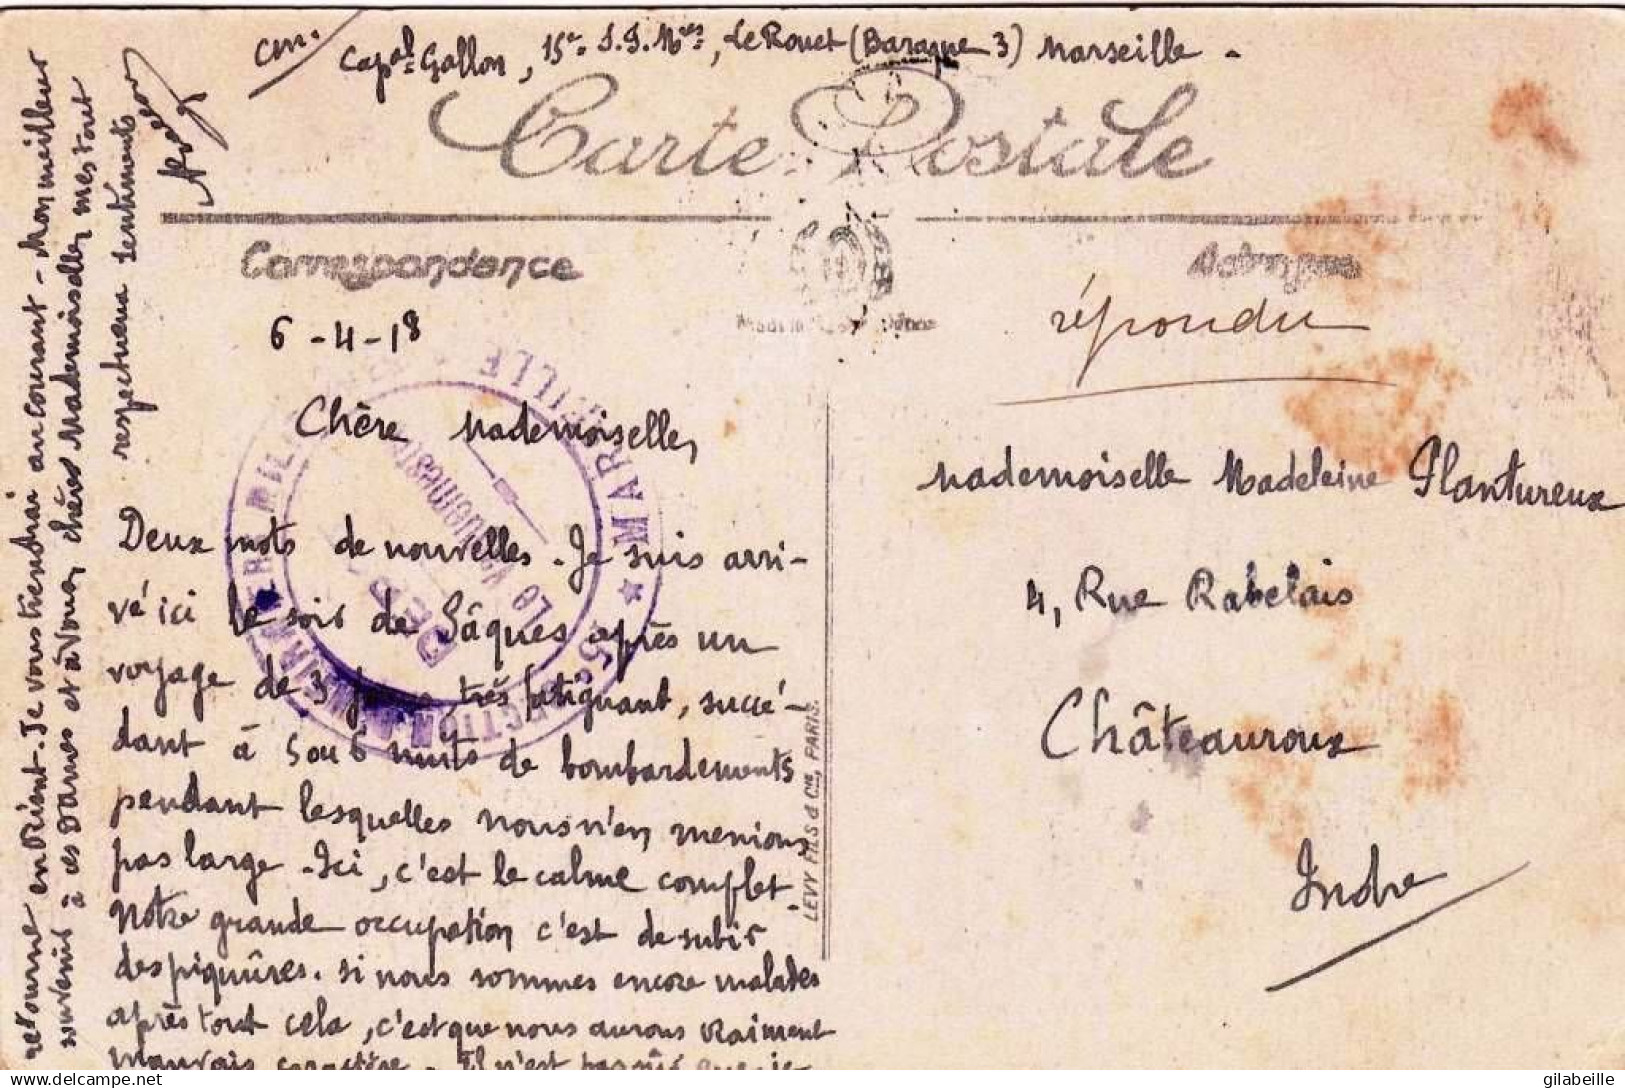 cm.
Cap^al Gallon, 15e S.I.M^res, Le Rouet (Baraque 3) Marseille -
Carte Postale
Correspondance
Adresse
6-4-18
répondu
Chère Mademoiselle,
Deux mots de nouvelles. Je suis arri-
vé ici le soir de Pâques après un
voyage de 3 jours, très fatiguant, succé-
dant à 5 ou 6 nuits de bombardements
pendant lesquelles nous n'en menions
pas large. Ici, c'est le calme complet.
Notre grande occupation c'est de subir
des piqûres. Si nous sommes encore malades
après tout cela, c'est que nous aurons vraiment
mauvais caractère. Il n'est pas sûr que je
retourne en Orient. Je vous tiendrai au courant - Mon meilleur
souvenir à ces Dames et à Vous, chère Mademoiselle, mes tout
respectueux sentiments
Mademoiselle Madeleine Plantureux
4, Rue Rabelais
Châteauroux
Indre
LEVY FILS & Cie, PARIS.
MARSEILLE
Le Vaguemestre
gilabeille